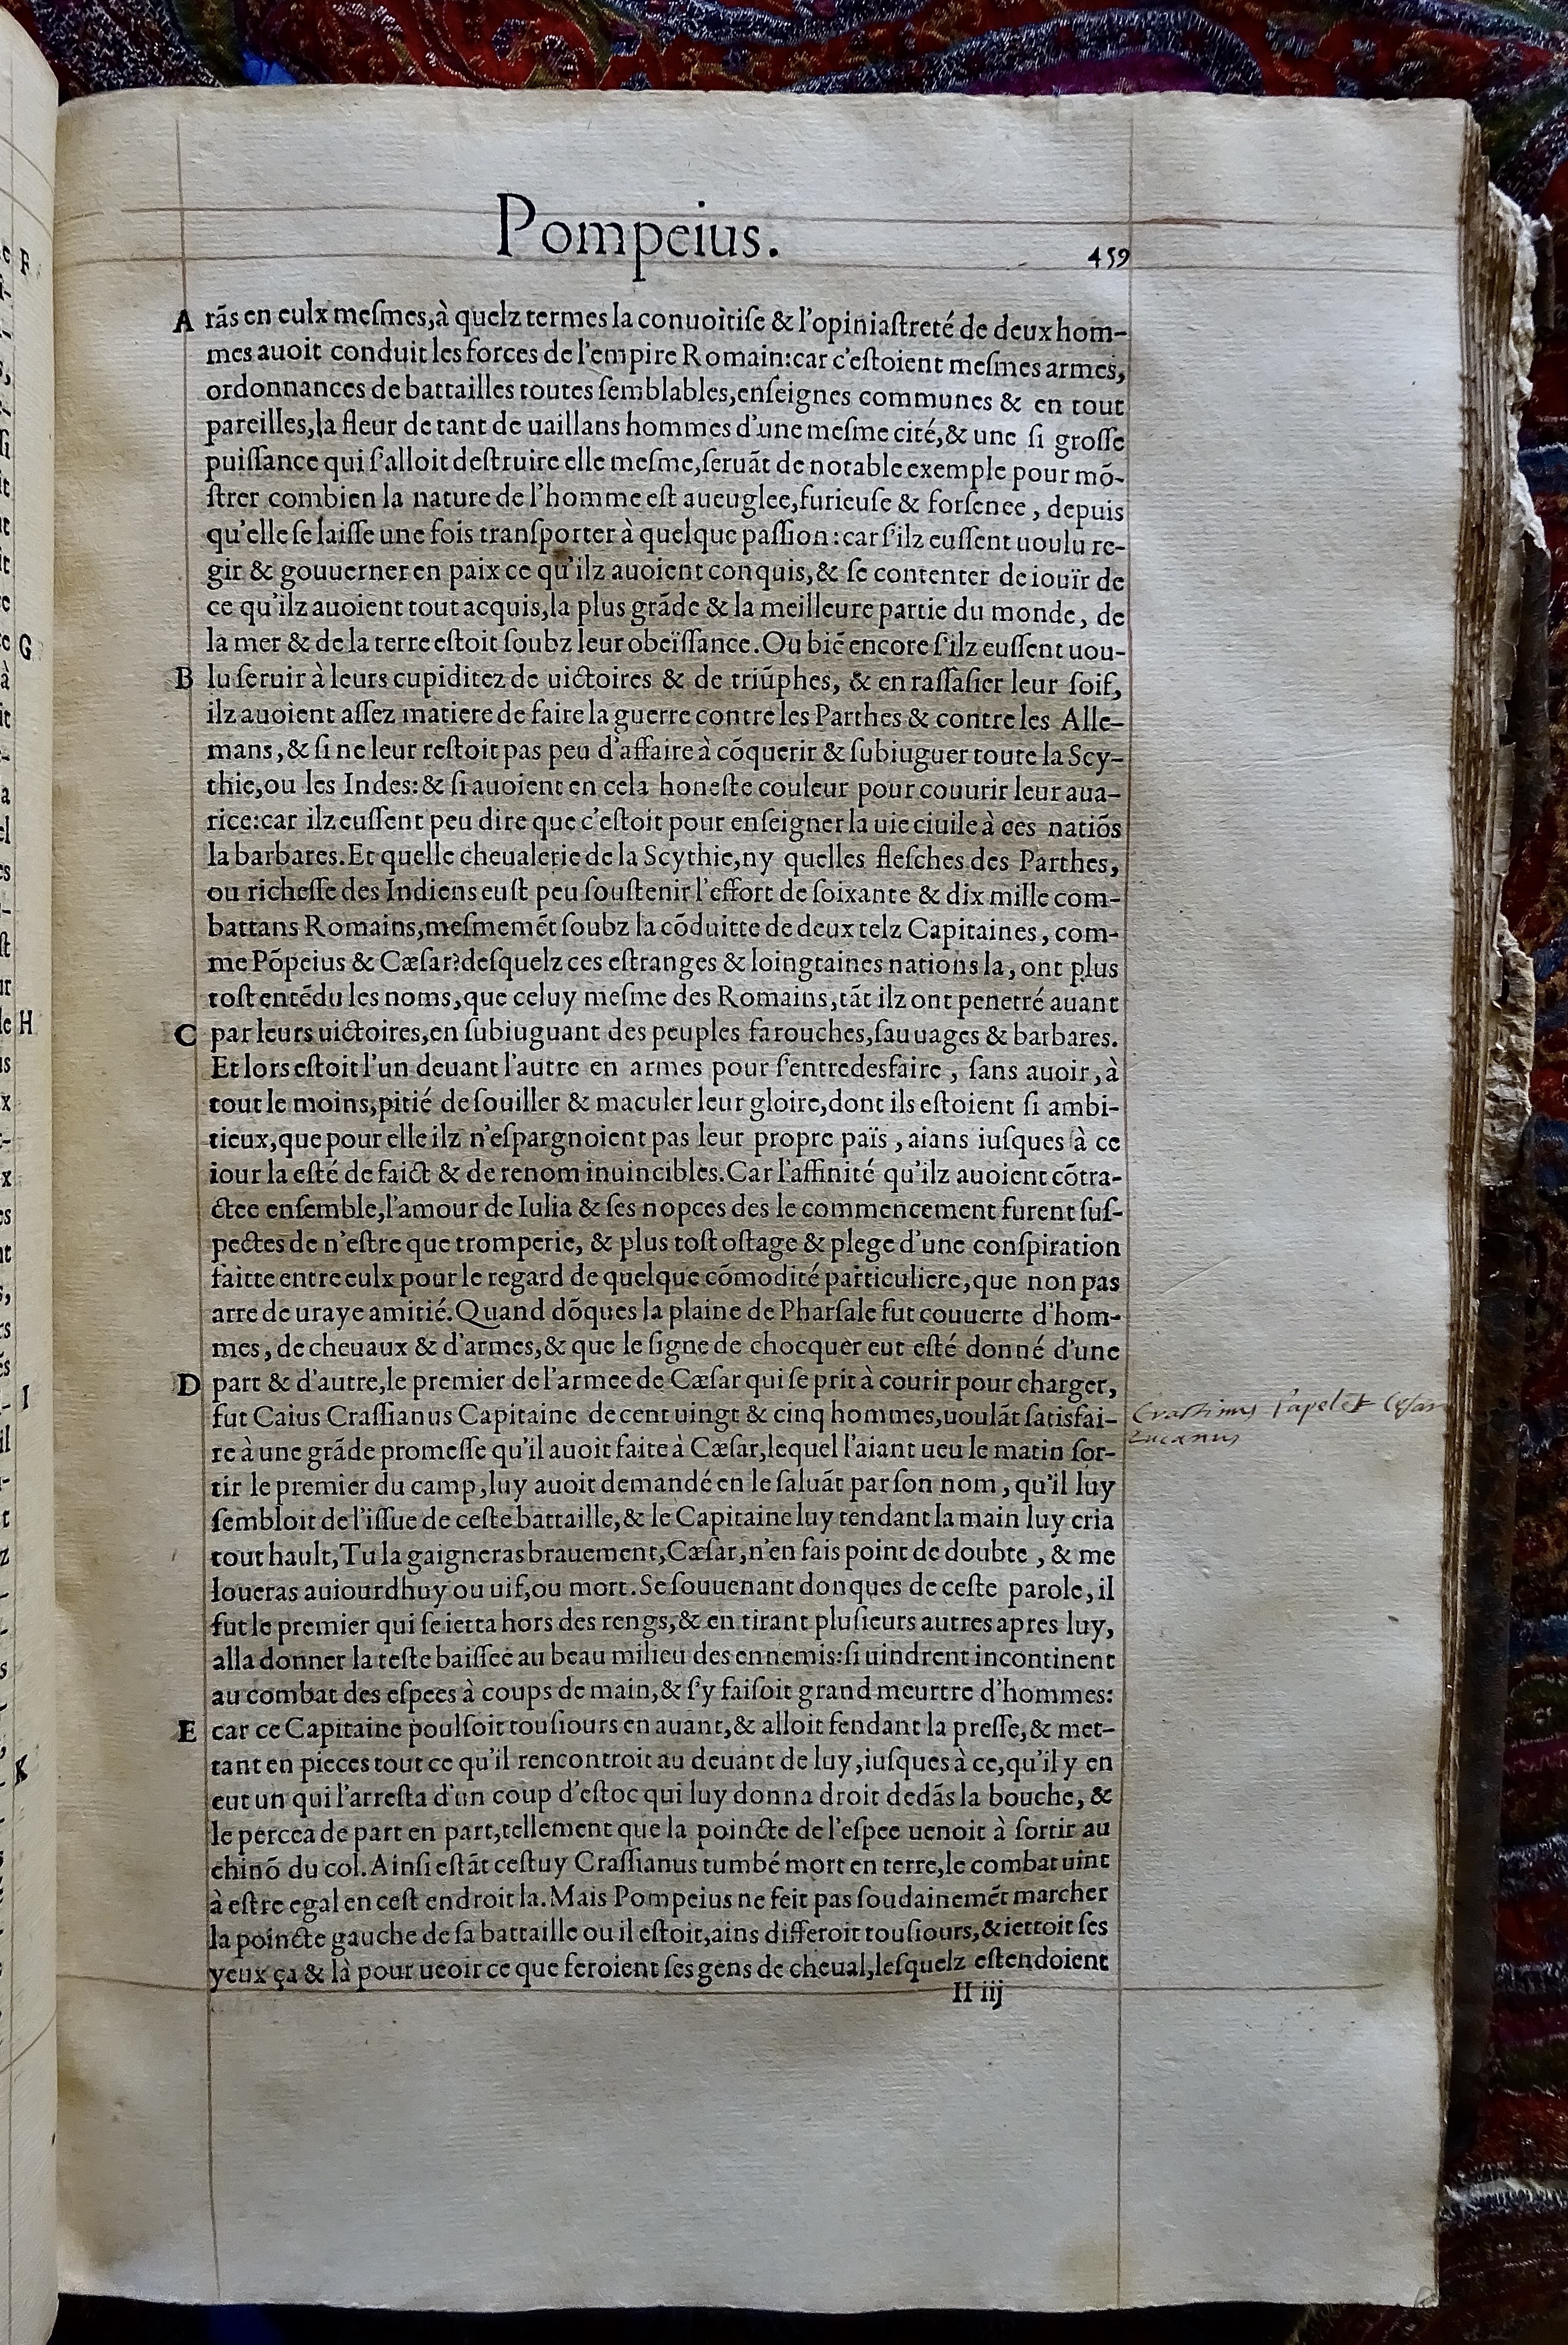 Pompeius.
459
A rãs en eulx meſmes, à quelz termes la conuoitiſe & l'opiniaſtreté de deux hom-
mes auoit conduit les forces de l'empire Romain: car c'eſtoient meſmes armes,
ordonnances de battailles toutes ſemblables, enſeignes communes & en tout
pareilles, la fleur de tant de uaillans hommes d'une meſme cité, & une ſi groſſe
puiſſance qui ſ'alloit deſtruire elle meſme, ſeruãt de notable exemple pour mõ-
ſtrer combien la nature de l'homme eſt aueuglee, furieuſe & forſenee, depuis
qu'elle ſe laiſſe une fois tranſporter à quelque paſſion: car ſ'ilz euſſent uoulu re-
gir & gouuerner en paix ce qu'ilz auoient conquis, & ſe contenter de iouïr de
ce qu'ilz auoient tout acquis, la plus grãde & la meilleure partie du monde, de
la mer & de la terre eſtoit ſoubz leur obeïſſance. Ou biẽ encore ſ'ilz euſſent uou-
B lu ſeruir à leurs cupiditez de uictoires & de triũphes, & en raſſaſier leur ſoif,
ilz auoient aſſez matiere de faire la guerre contre les Parthes & contre les Alle-
mans, & ſi ne leur reſtoit pas peu d'affaire à cõquerir & ſubiuguer toute la Scy-
thie, ou les Indes: & ſi auoient en cela honeſte couleur pour couurir leur aua-
rice: car ilz euſſent peu dire que c'eſtoit pour enſeigner la uie ciuile à ces natiõs
la barbares. Et quelle cheualerie de la Scythie, ny quelles fleſches des Parthes,
ou richeſſe des Indiens euſt peu ſouſtenir l'effort de ſoixante & dix mille com-
battans Romains, meſmemẽt ſoubz la cõduitte de deux telz Capitaines, com-
me Põpeius & Cæſar? deſquelz ces eſtranges & loingtaines nations la, ont plus
toſt entẽdu les noms, que celuy meſme des Romains, tãt ilz ont penetré auant
C par leurs uictoires, en ſubiuguant des peuples farouches, ſauuages & barbares.
Et lors eſtoit l'un deuant l'autre en armes pour ſ'entredesfaire, ſans auoir, à
tout le moins, pitié de ſouiller & maculer leur gloire, dont ils eſtoient ſi ambi-
tieux, que pour elle ilz n'eſpargnoient pas leur propre païs, aians iuſques à ce
iour la eſté de faict & de renom inuincibles. Car l'affinité qu'ilz auoient cõtra-
ctee enſemble, l'amour de Iulia & ſes nopces des le commencement furent ſuſ-
pectes de n'eſtre que tromperie, & plus toſt oſtage & plege d'une conſpiration
faitte entre eulx pour le regard de quelque cõmodité particuliere, que non pas
arre de uraye amitié. Quand dõques la plaine de Pharſale fut couuerte d'hom-
mes, de cheuaux & d'armes, & que le ſigne de chocquer eut eſté donné d'une
D part & d'autre, le premier de l'armee de Cæſar qui ſe prit à courir pour charger,
fut Caius Craſſianus Capitaine de cent uingt & cinq hommes, uoulãt ſatisfai-
re à une grãde promeſſe qu'il auoit faite à Cæſar, lequel l'aiant ueu le matin ſor-
tir le premier du camp, luy auoit demandé en le ſaluãt par ſon nom, qu'il luy
ſembloit de l'iſſue de ceſte battaille, & le Capitaine luy tendant la main luy cria
tout hault, Tu la gaigneras brauement, Cæſar, n'en fais point de doubte, & me
loueras auiourdhuy ou uif, ou mort. Se ſouuenant donques de ceſte parole, il
fut le premier qui ſe ietta hors des rengs, & en tirant pluſieurs autres apres luy,
alla donner la teſte baiſſee au beau milieu des ennemis: ſi uindrent incontinent
au combat des eſpees à coups de main, & ſ'y faiſoit grand meurtre d'hommes:
E car ce Capitaine poulſoit touſiours en auant, & alloit fendant la preſſe, & met-
tant en pieces tout ce qu'il rencontroit au deuant de luy, iuſques à ce, qu'il y en
eut un qui l'arreſta d'un coup d'eſtoc qui luy donna droit dedãs la bouche, &
le percea de part en part, tellement que la poincte de l'eſpee uenoit à ſortir au
chinõ du col. Ainſi eſtãt ceſtuy Craſſianus tumbé mort en terre, le combat uint
à eſtre egal en ceſt endroit la. Mais Pompeius ne feit pas ſoudainemẽt marcher
la poincte gauche de ſa battaille ou il eſtoit, ains differoit touſiours, & iettoit ſes
yeux ça & là pour ueoir ce que feroient ſes gens de cheual, leſquelz eſtendoient
II iij
Crastinus l'apelet Cesar
Lucanus
F
G
H
I
K